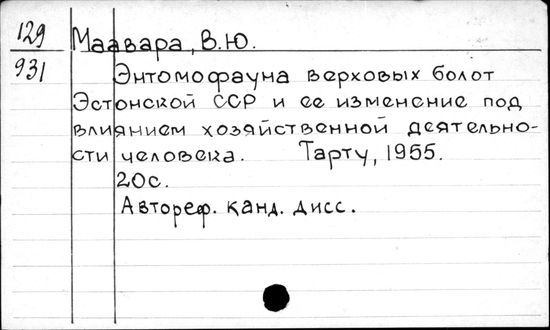 129 Маавара, В.Ю.
931 Энтомофауна верховых болот
Эстонской ССР и ее изменение под
влиянием хозяйственной деятельно-
сти человека. Тарту, 1955.
20с.
Автореф. канд. дисс.